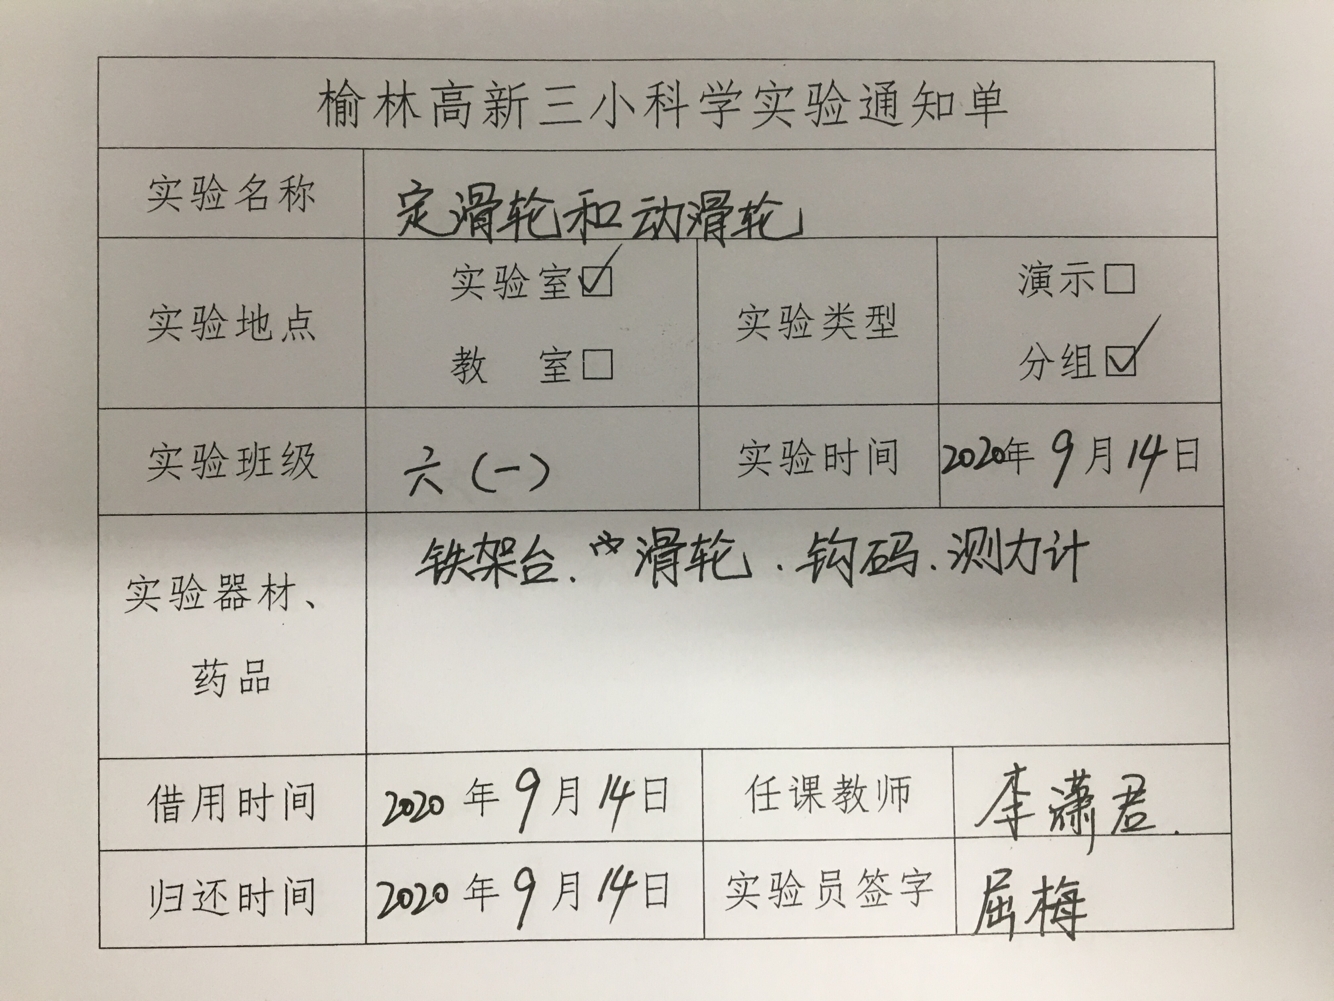 榆林高新三小科学实验通知单
实验名称 定滑轮和动滑轮
实验地点 实验室☑ 教 室□ 实验类型 演示□ 分组☑
实验班级 六(一) 实验时间 2020年9月14日
实验器材、药品 铁架台、滑轮、钩码、测力计
借用时间 2020年9月14日 任课教师 李潇君.
归还时间 2020年9月14日 实验员签字 屈梅